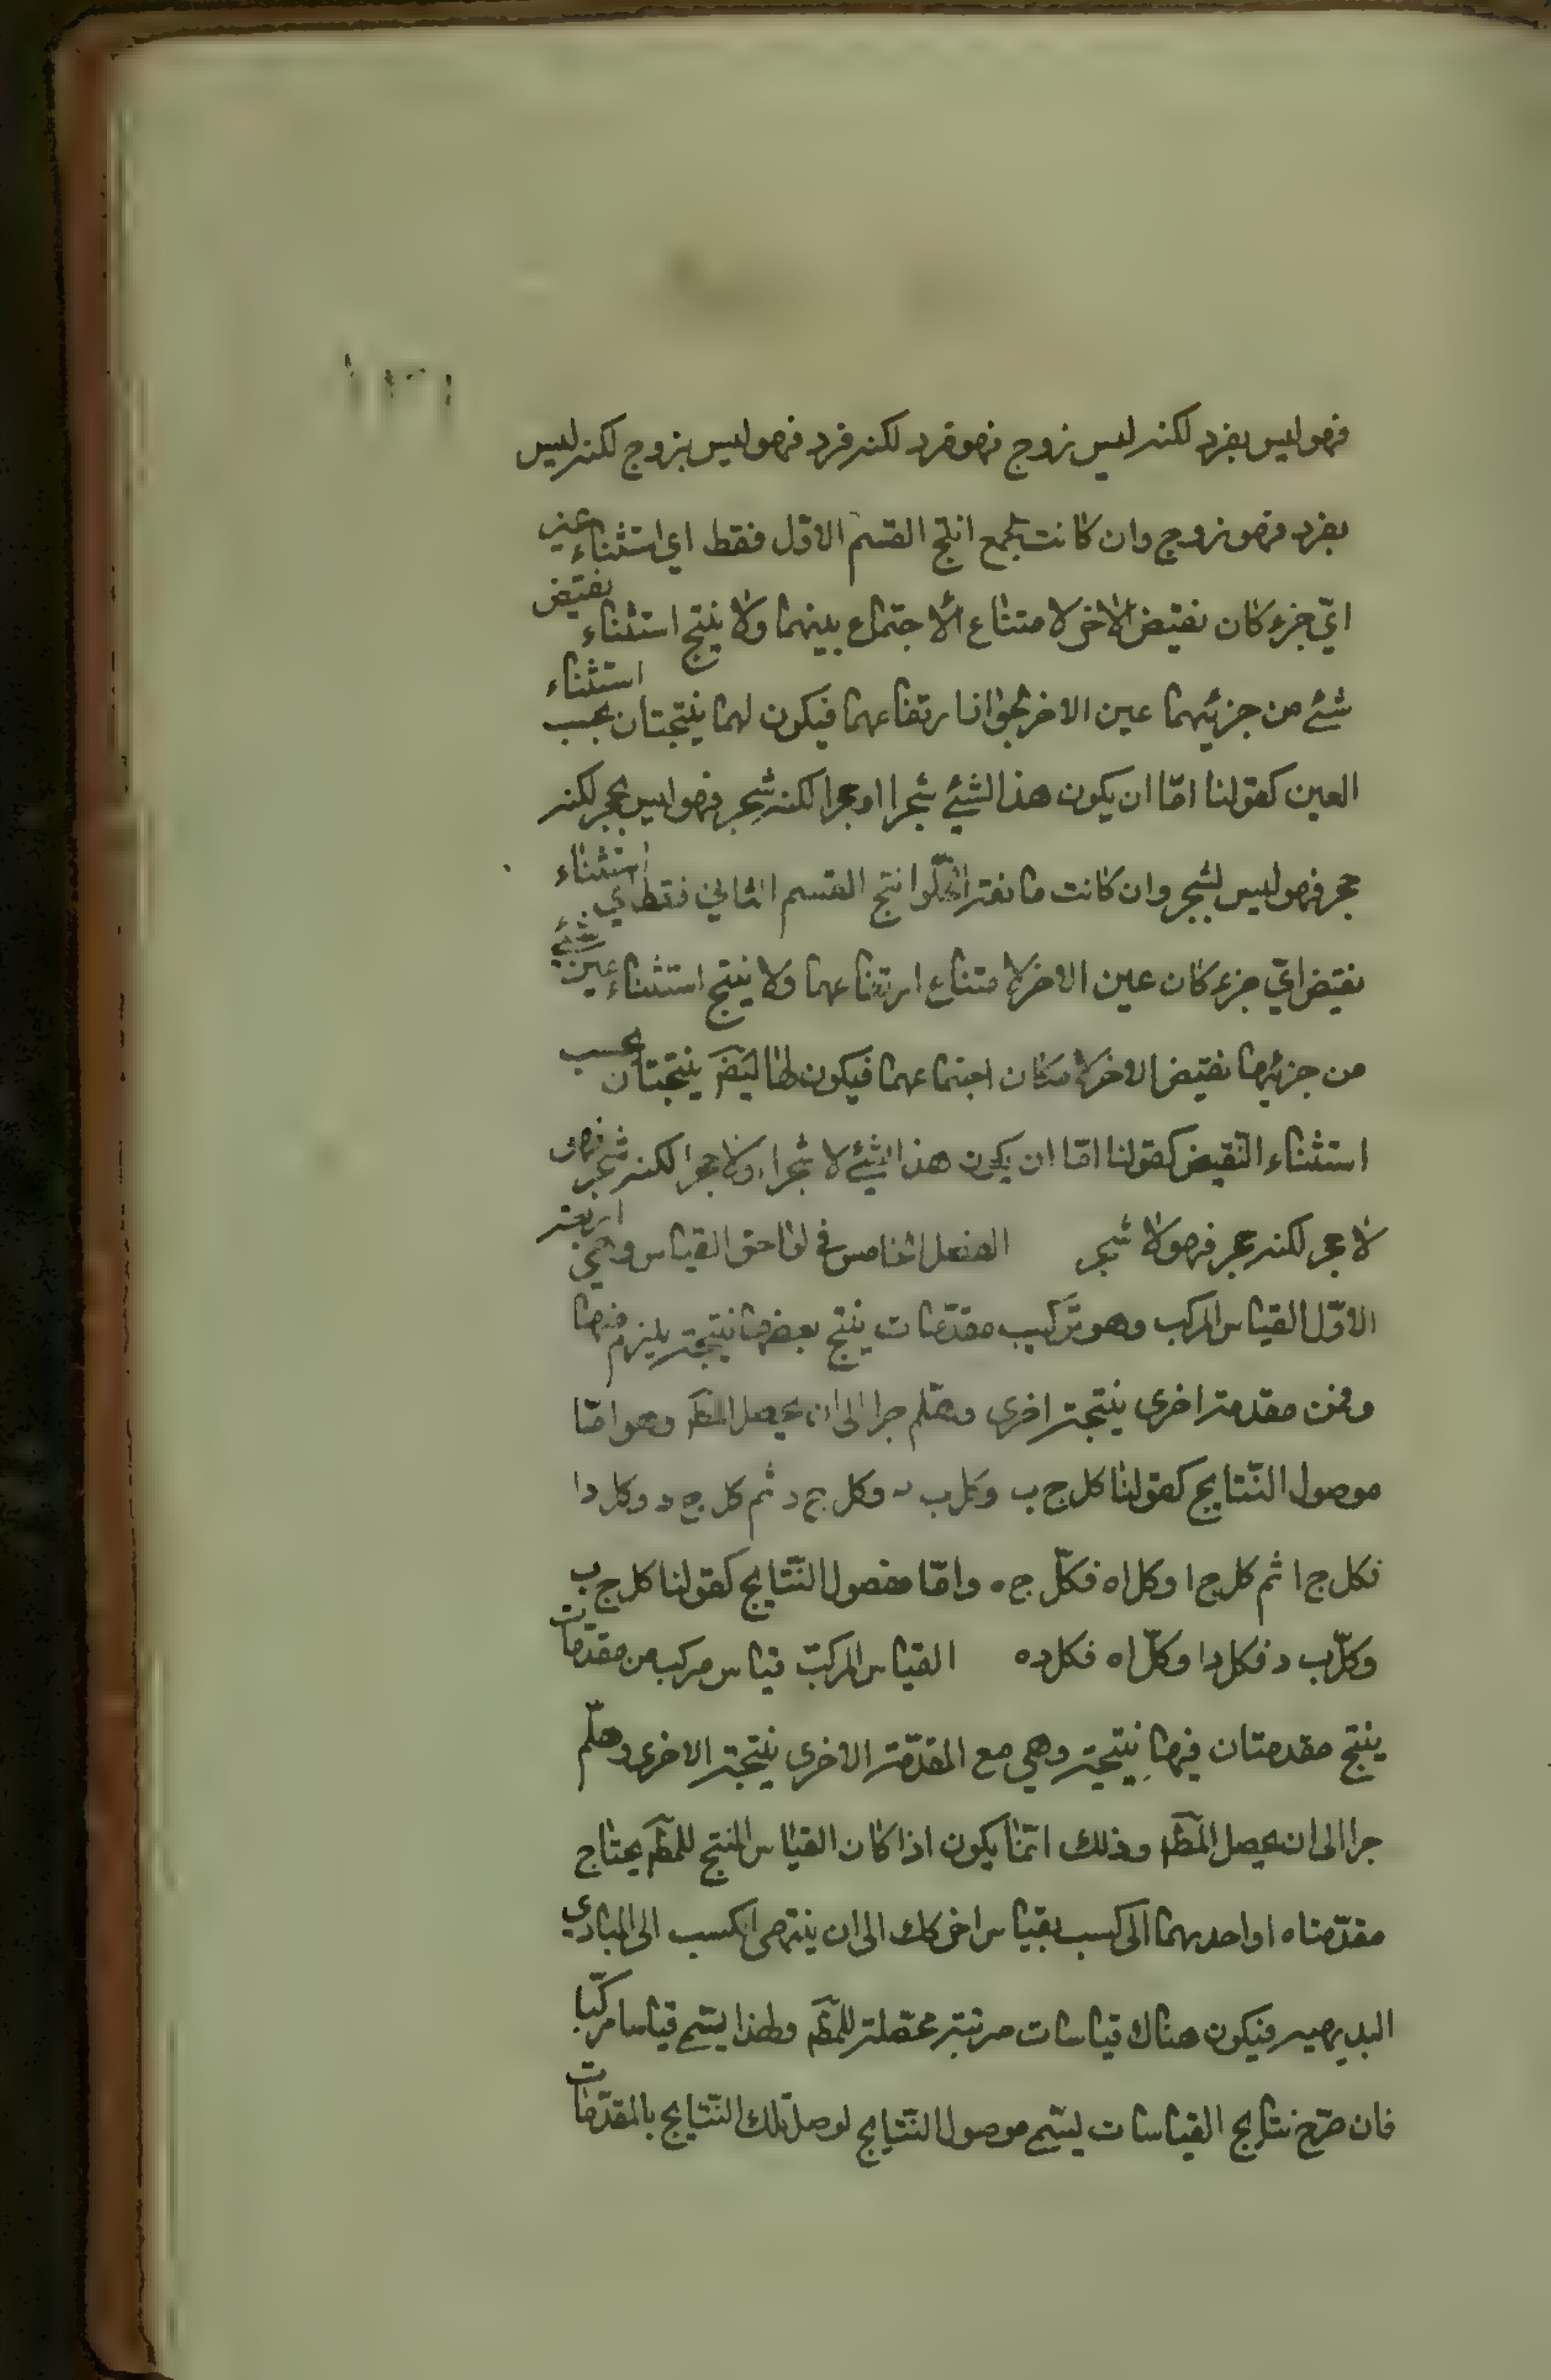 فهو ليس بفرد لكنه ليس بزوج فهو فرد لكنه فرد فهو ليس بزوج لكنه ليس
بفرد فهو زوج وان كانت الجمع انتج القسم الاوّل فقط اي استثناء عين
ايّ جزء كان نقيض الاخر لامتناع الاجتماع بينهما ولا ينتج استثناء نقيض
شئ من جزئيهما عين الاخر لجواز ارتفاعهما فيكون لهما نتيجتان بحسب استثناء
العين كقولنا امّا ان يكون هذا الشئ شجرا او حجرا لكنه شجر فهو ليس بحجر لكنه
حجر فهو ليس بشجر وان كانت مانعة الخلّو انتج القسم الثاني فقط اي استثناء
نقيض ايّ جزء كان عين الاخر لامتناع ارتفاعهما ولا ينتج استثناء عين شئ
من جزئيهما نقيض الاخر لامكان اجتماعهما فيكون لها ايضَ نتيجتان بحسب
استثناء النّقيض كقولنا امّا ان يكون هذا الشئ لا شجرا ولا حجرا لكنه شجر فهو
لا حجر لكنه حجر فهو لا شجر الفصل الخامس في لواحق القياس وهي اربعة
الاوّل القياس المركب وهو تركيب مقدّمات ينتج بعضها نتيجة يلزم منها
ومن مقدمة اخرى نتيجة اخرى وهلّم جرا الى ان يحصل المطَ وهو امّا
موصول النّتايج كقولنا كل ج ب وكل ب د وكل ج د ثم كل ج د وكل د ا
فكل ج ا ثم كل ج ا وكل ا ه فكلّ ج ه وامّا مفصول النّتايج كقولنا كل ج ب
وكلّ ب د فكل د ا وكلّ ا ه فكل د ه القياس المركبّ قياس مركب من مقدّمات
ينتج مقدمتان فيها نتيجة وهي مع المقدّمة الاخرى نتيجة الاخرى وهلّم
جرا الى ان يحصل المطَ وذلك انّما يكون اذا كان القياس المنتج للمطَ يحتاج
مقدّمتاه او احدهما الى كسب بقياس اخر كك الى ان ينتهى الكسب الى المبادي
البديهيه فيكون هناك قياسات مرتبة محصّلة للمطَ ولهذا يسّمى قياسا مركّبا
فان صرّح نتايج القياسات يسّمى موصول النّتايج لوصل تلك النّتايج بالمقدّمات